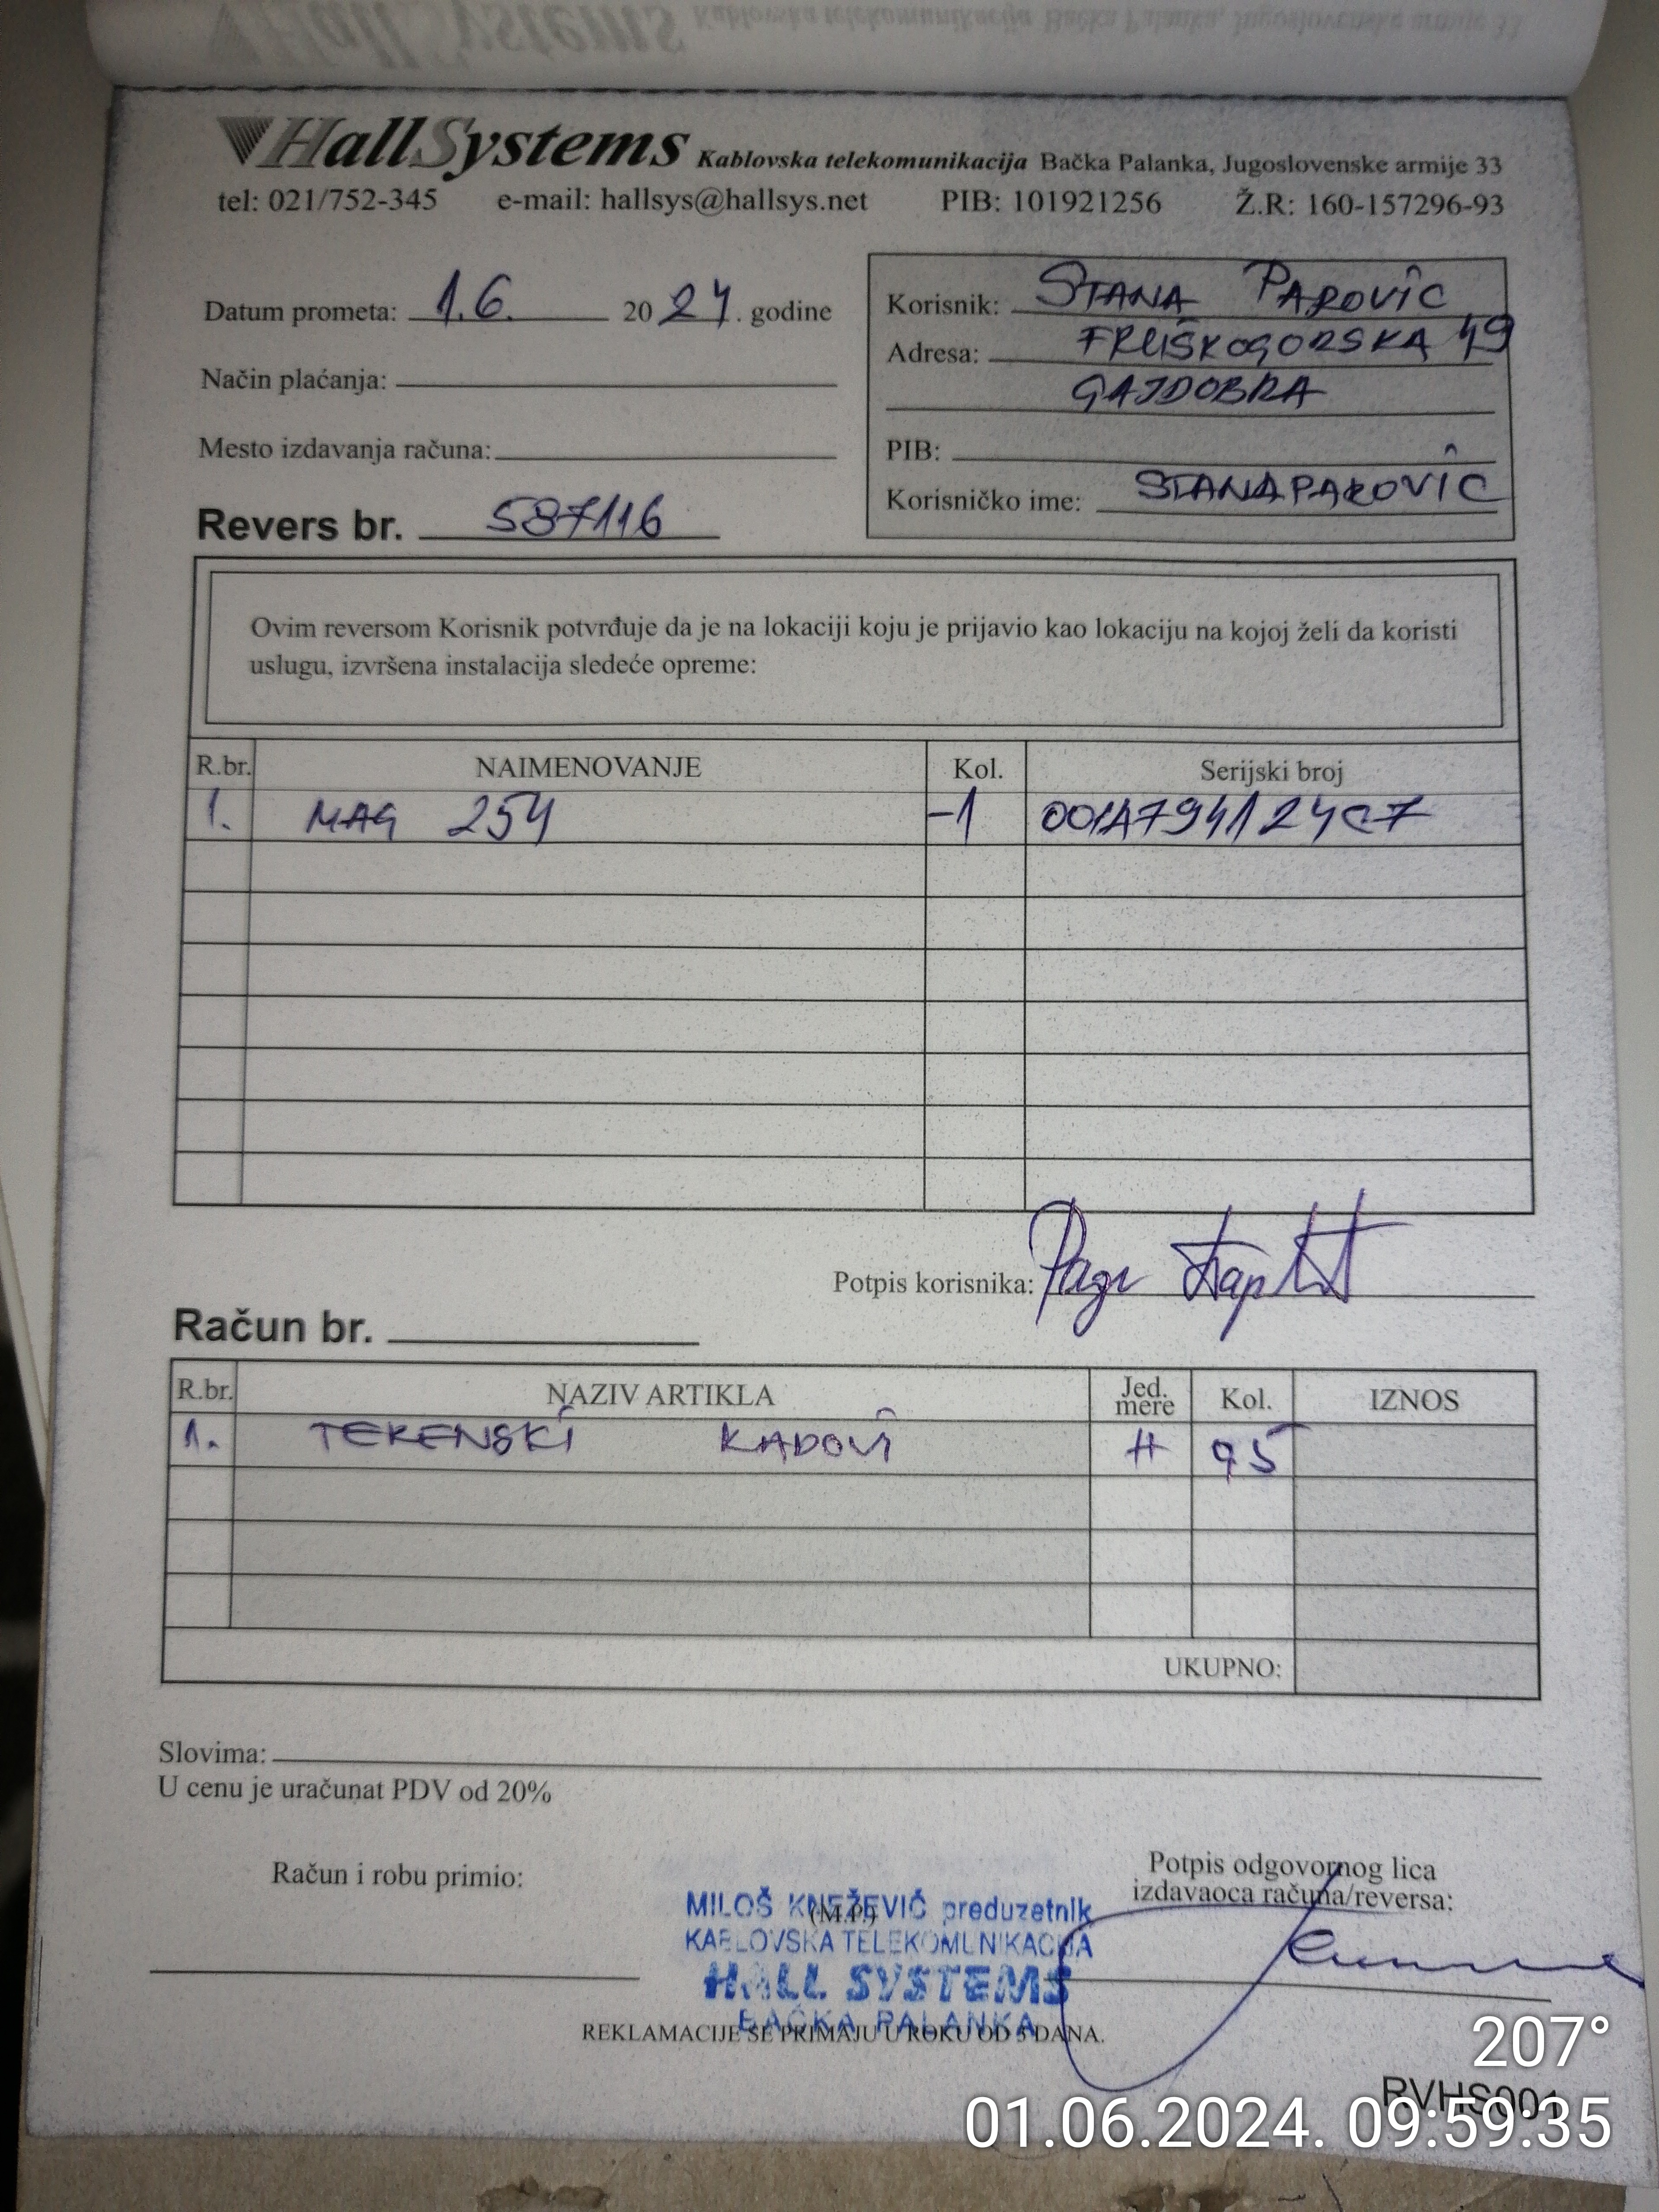 HallSystems Kablovska telekomunikacija Bačka Palanka, Jugoslovenske armije 33
tel: 021/752-345 e-mail: hallsys@hallsys.net PIB: 101921256 Ž.R: 160-157296-93
Datum prometa: 1.6. 2024. godine
Način plaćanja:
Mesto izdavanja računa:
Revers br. 587116
Korisnik: STANA PAROVIC
Adresa: FRUŠKOGORSKA 49
GAJDOBRA
PIB:
Korisničko ime: STANAPAROVIC
Ovim reversom Korisnik potvrđuje da je na lokaciji koju je prijavio kao lokaciju na kojoj želi da koristi
uslugu, izvršena instalacija sledeće opreme:
R.br. NAIMENOVANJE Kol. Serijski broj
1. MAG 254 -1 001A794124C7
Potpis korisnika:
Račun br.
R.br. NAZIV ARTIKLA Jed. mere Kol. IZNOS
1. TERENSKI RADOVI H 0,5
UKUPNO:
Slovima:
U cenu je uračunat PDV od 20%
Račun i robu primio:
(M.P.)
Potpis odgovornog lica
izdavaoca računa/reversa:
MILOŠ KNEŽEVIĆ preduzetnik
KABLOVSKA TELEKOMUNIKACIJA
HALL SYSTEMS
BAČKA PALANKA
REKLAMACIJE SE PRIMAJU U ROKU OD 5 DANA.
207°
RVHS001
01.06.2024. 09:59:35